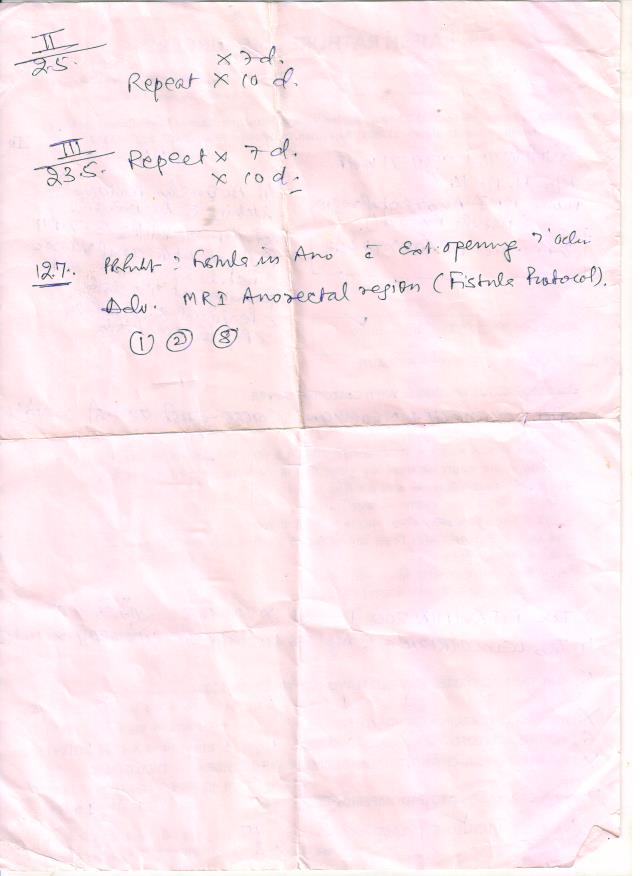 II
25.
x 7 d.
Repeat x 10 d.
III
23.5.
Repeat x 7 d.
x 10 d.
12.7. : Fistula in Ano c̄ Ext. opening 7' o'clock
Adv. MRI Anorectal region (Fistula Protocol).
① ② ⑧